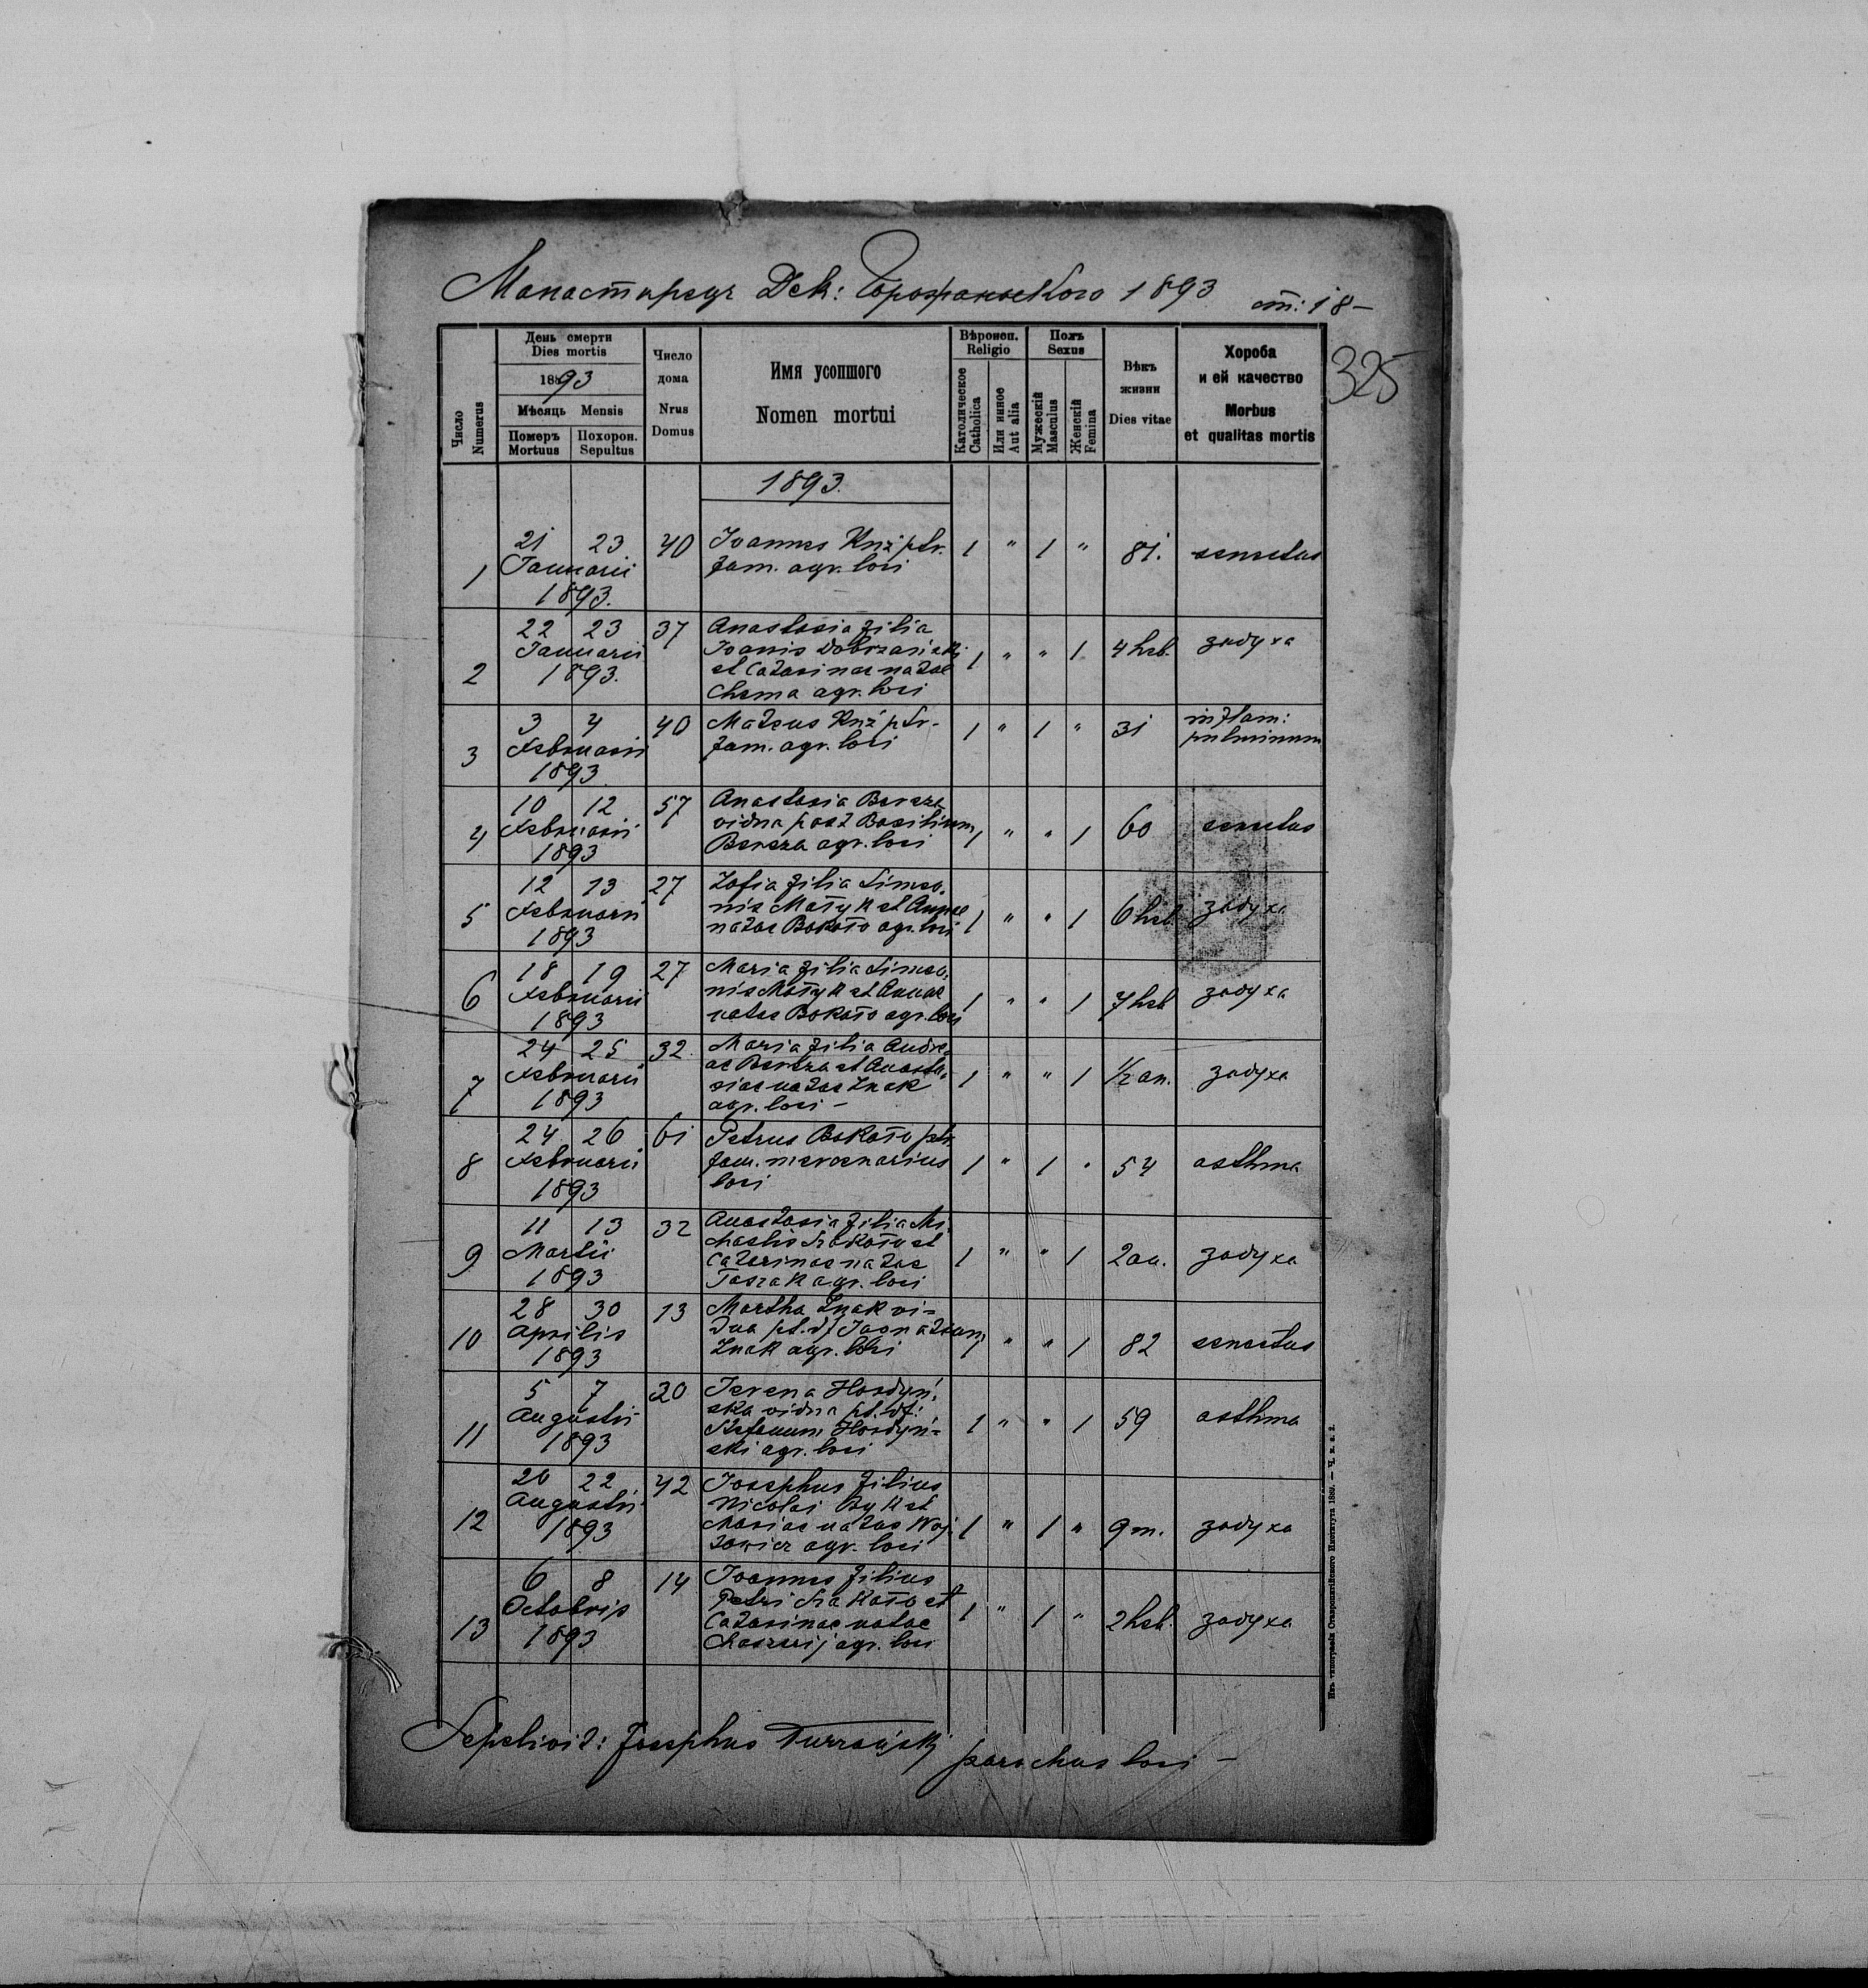 Манастирець Дек: 1893 ст: 18 –
325
Число
Numerus
День смерти
Dies mortis
1893
Мѣсяць Mensis
Померъ
Mortuus
Похорон.
Sepultus
Число
дома
Nrus
Domus
Имя усопшого
Nomen mortui
Вѣроисп.
Religio
Католическое
Catholica
Или иное
Aut alia
Полъ
Sexus
Мужескій
Masculus
Женскій
Femina
Вѣкъ
жизни
Dies vitae
Хороба
и ей качество
Morbus
et qualitas mortis
1893.
1 21 23 40 Ioannes ptr. 1 " 1 " 81. senectus
Januarii fam. agr. loci
1893.
2 22 23 37 Anastasia filia 1 " " 1 4 heb. задуха
Januarii Joannis Dobrzański
1893. et Catarinae natae
Chema agr. loci
3 3 4 40 Mateus ptr. 1 " 1 " 31 inflam:
Februarii fam. agr. loci pulminum
1893
4 10 12 57 Anastasia Bereza 1 " " 1 60 senectus
Februarii vidua post Basilium
1893 Bereza agr. loci
5 12 13 27 Zofia filia Simeo- 1 " " 1 6 heb. задуха
Februarii nis Małyk et Annae
1893 natae Bokoło agr. loci
6 18 19 27 Maria filia Simeo- 1 " " 1 7 heb. задуха
Februarii nis Małyk et Annae
1893 natae Bokoło agr. loci
7 24 25 32. Maria filia Andre- 1 " " 1 1/2 an. задуха
Februarii ae Bereza et Anasta-
1893 siae natae Znak
agr. loci –
8 24 26 61 Petrus Bokoło ptr. 1 " 1 " 54 asthma
Februarii fam. mercenarius
1893 loci
9 11 13 32 Anastasia filia Mi- 1 " " 1 2 an. задуха
Martii chaelis et
1893 Caterinae natae
Taszak agr. loci
10 28 30 13 Martha Znak vi- 1 " " 1 82 senectus
Aprilis dua pt. df
1893 Znak agr. loci
11 5 7 20 Terena Hordyń- 1 " " 1 59 asthma
Augusti ska vidua pt. df:
1893 Stefanum Hordyń-
ski agr. loci
12 20 22 42 Josephus filius 1 " 1 " 9 m. задуха
Augusti Nicolai Byk et
1893 Mariae natae Woj-
towicz agr. loci
13 6 8 14 Joannes filius 1 " 1 " 2 heb. задуха
Octobris Petri et
1893 Catarinae natae
agr. loci
Sepelivit: Josephus parochus loci –
Изъ типографіи Ставропигійского Института 1889. — Ч. в. а. 2.